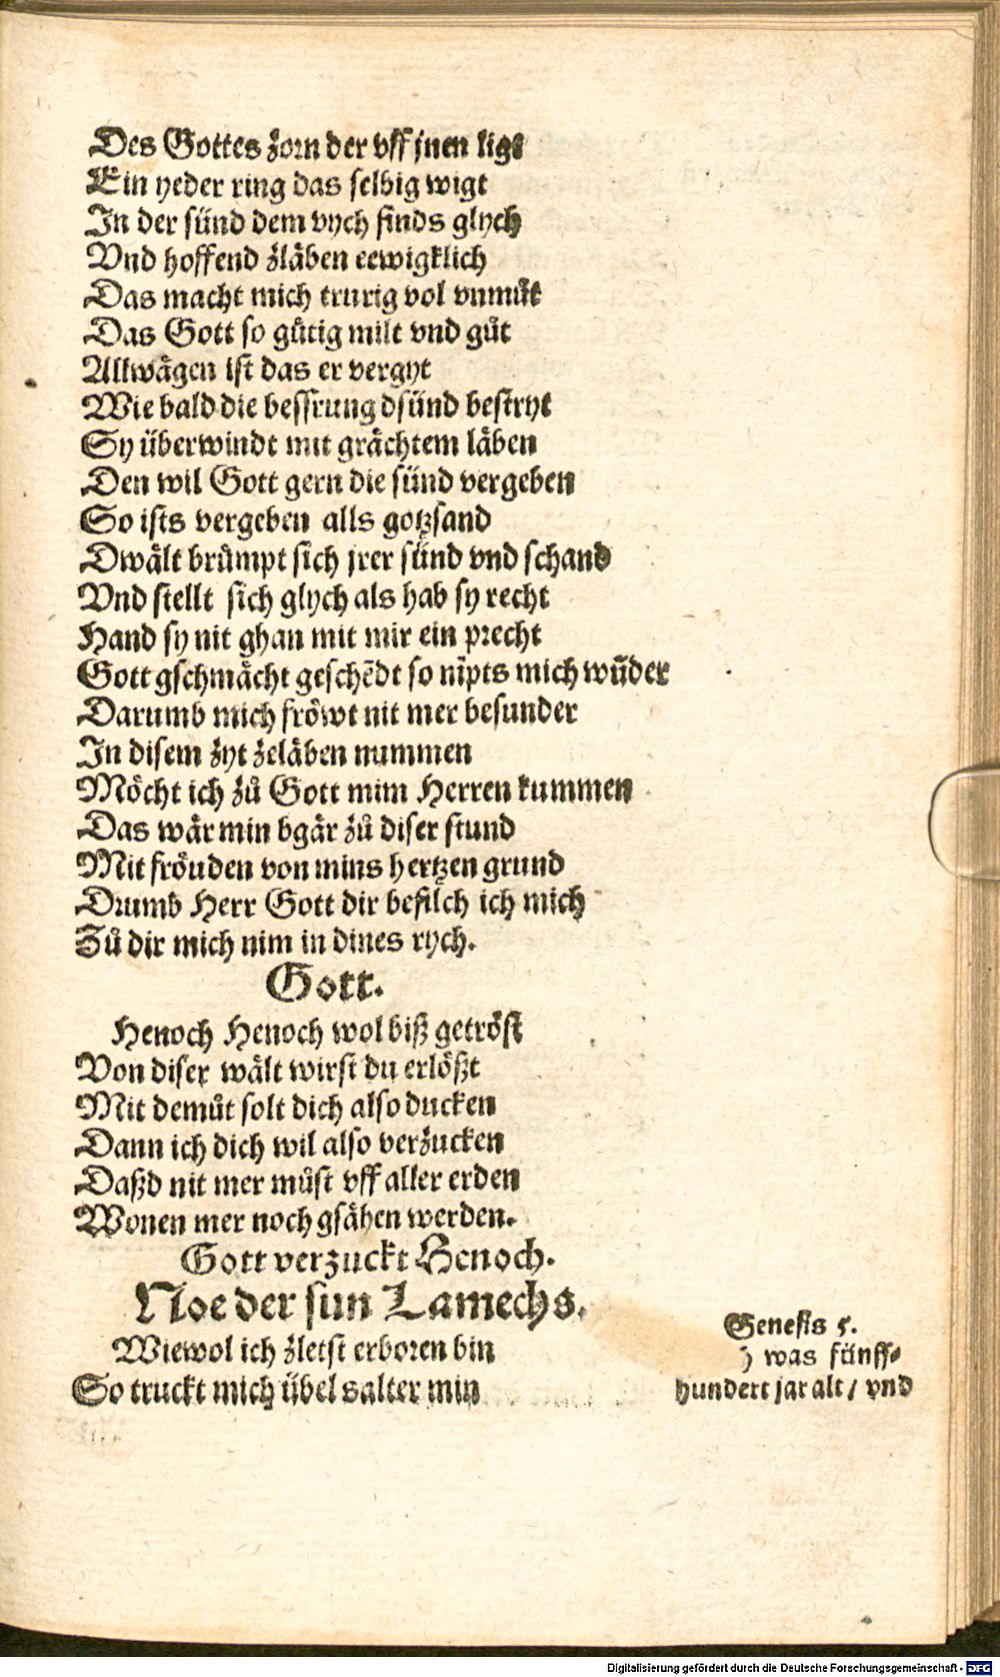 Des Gottes zorn der vff jnen ligt
Ein yeder ring das selbig wigt
In der sünd dem vych sinds glych
Vnd hoffend zläben eewigklich
Das macht mich trurig vol vnmůt
Das Gott so gütig milt vnd gůt
Allwägen ist das er vergyt
Wie bald die bessrung dsünd bestryt
Sy überwindt mit grächtem läben
Den wil Gott gern die sünd vergeben
So ists vergeben alls gotzsand
Dwält brümpt sich jrer sünd vnd schand
Vnd stellt sich glych als hab sy recht
Hand sy nit ghan mit mir ein precht
Gott gschmächt geschēdt so nīpts mich wūder
Darumb mich fröwt nit mer besunder
In disem zyt zeläben nummen
Möcht ich zů Gott mim Herren kummen
Das wär min bgär zů diser stund
Mit fröuden von mins hertzen grund
Drumb Herr Gott dir befilch ich mich
Zů dir mich nim in dines rych.
Gott.
Henoch Henoch wol biß getröst
Von diser wält wirst du erlößt
Mit demůt solt dich also ducken
Dann ich dich wil also verzucken
Daßd nit mer můst vff aller erden
Wonen mer noch gsähen werden.
Gott verzuckt Henoch.
Noe der sun Lamechs.
Wiewol ich zletst erboren bin
So truckt mich übel salter min
Genesis 5.
was fünff-
hundert jar alt / vnd
Digitalisierung gefördert durch die Deutsche Forschungsgemeinschaft - DFG